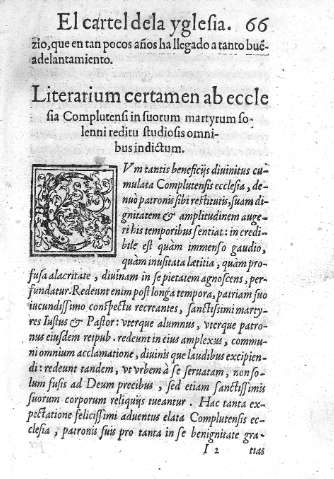 El cartel dela yglesia. 66
zio, que en tan pocos años ha llegado a tanto buē
adelantamiento.
Literarium certamen ab eccle
sia Complutensi in suorum martyrum so-
lenni reditu studiosis omni-
bus indictum.
CVm tantis beneficijs diuinitus cu-
mulata Complutensis ecclesia, de-
nuò patronis sibi restitutis, suam di-
gnitatem & amplitudinem auge-
ri his temporibus sentiat: in credi-
bile est quàm immenso gaudio,
quàm inusitata lætitia, quàm pro-
fusa alacritate, diuinam in se pietatem agnoscens, per-
fundatur. Redeunt enim post longa tempora, patriam suo
iucundissimo conspectu recreantes, sanctissimi marty-
res Iustus & Pastor: vterque alumnus, vterque patro-
nus eiusdem reipub. redeunt in eius amplexus, commu-
ni omnium acclamatione, diuinis que laudibus excipien-
di: redeunt tandem, vt vrbem à se seruatam, non so-
lum fusis ad Deum precibus, sed etiam sanctissimis
suorum corporum reliquijs tueantur. Hac tanta ex-
pectatione felicissimi aduentus elata Complutensis ec-
clesia, patronis suis pro tanta in se benignitate gra-
I 2 tias